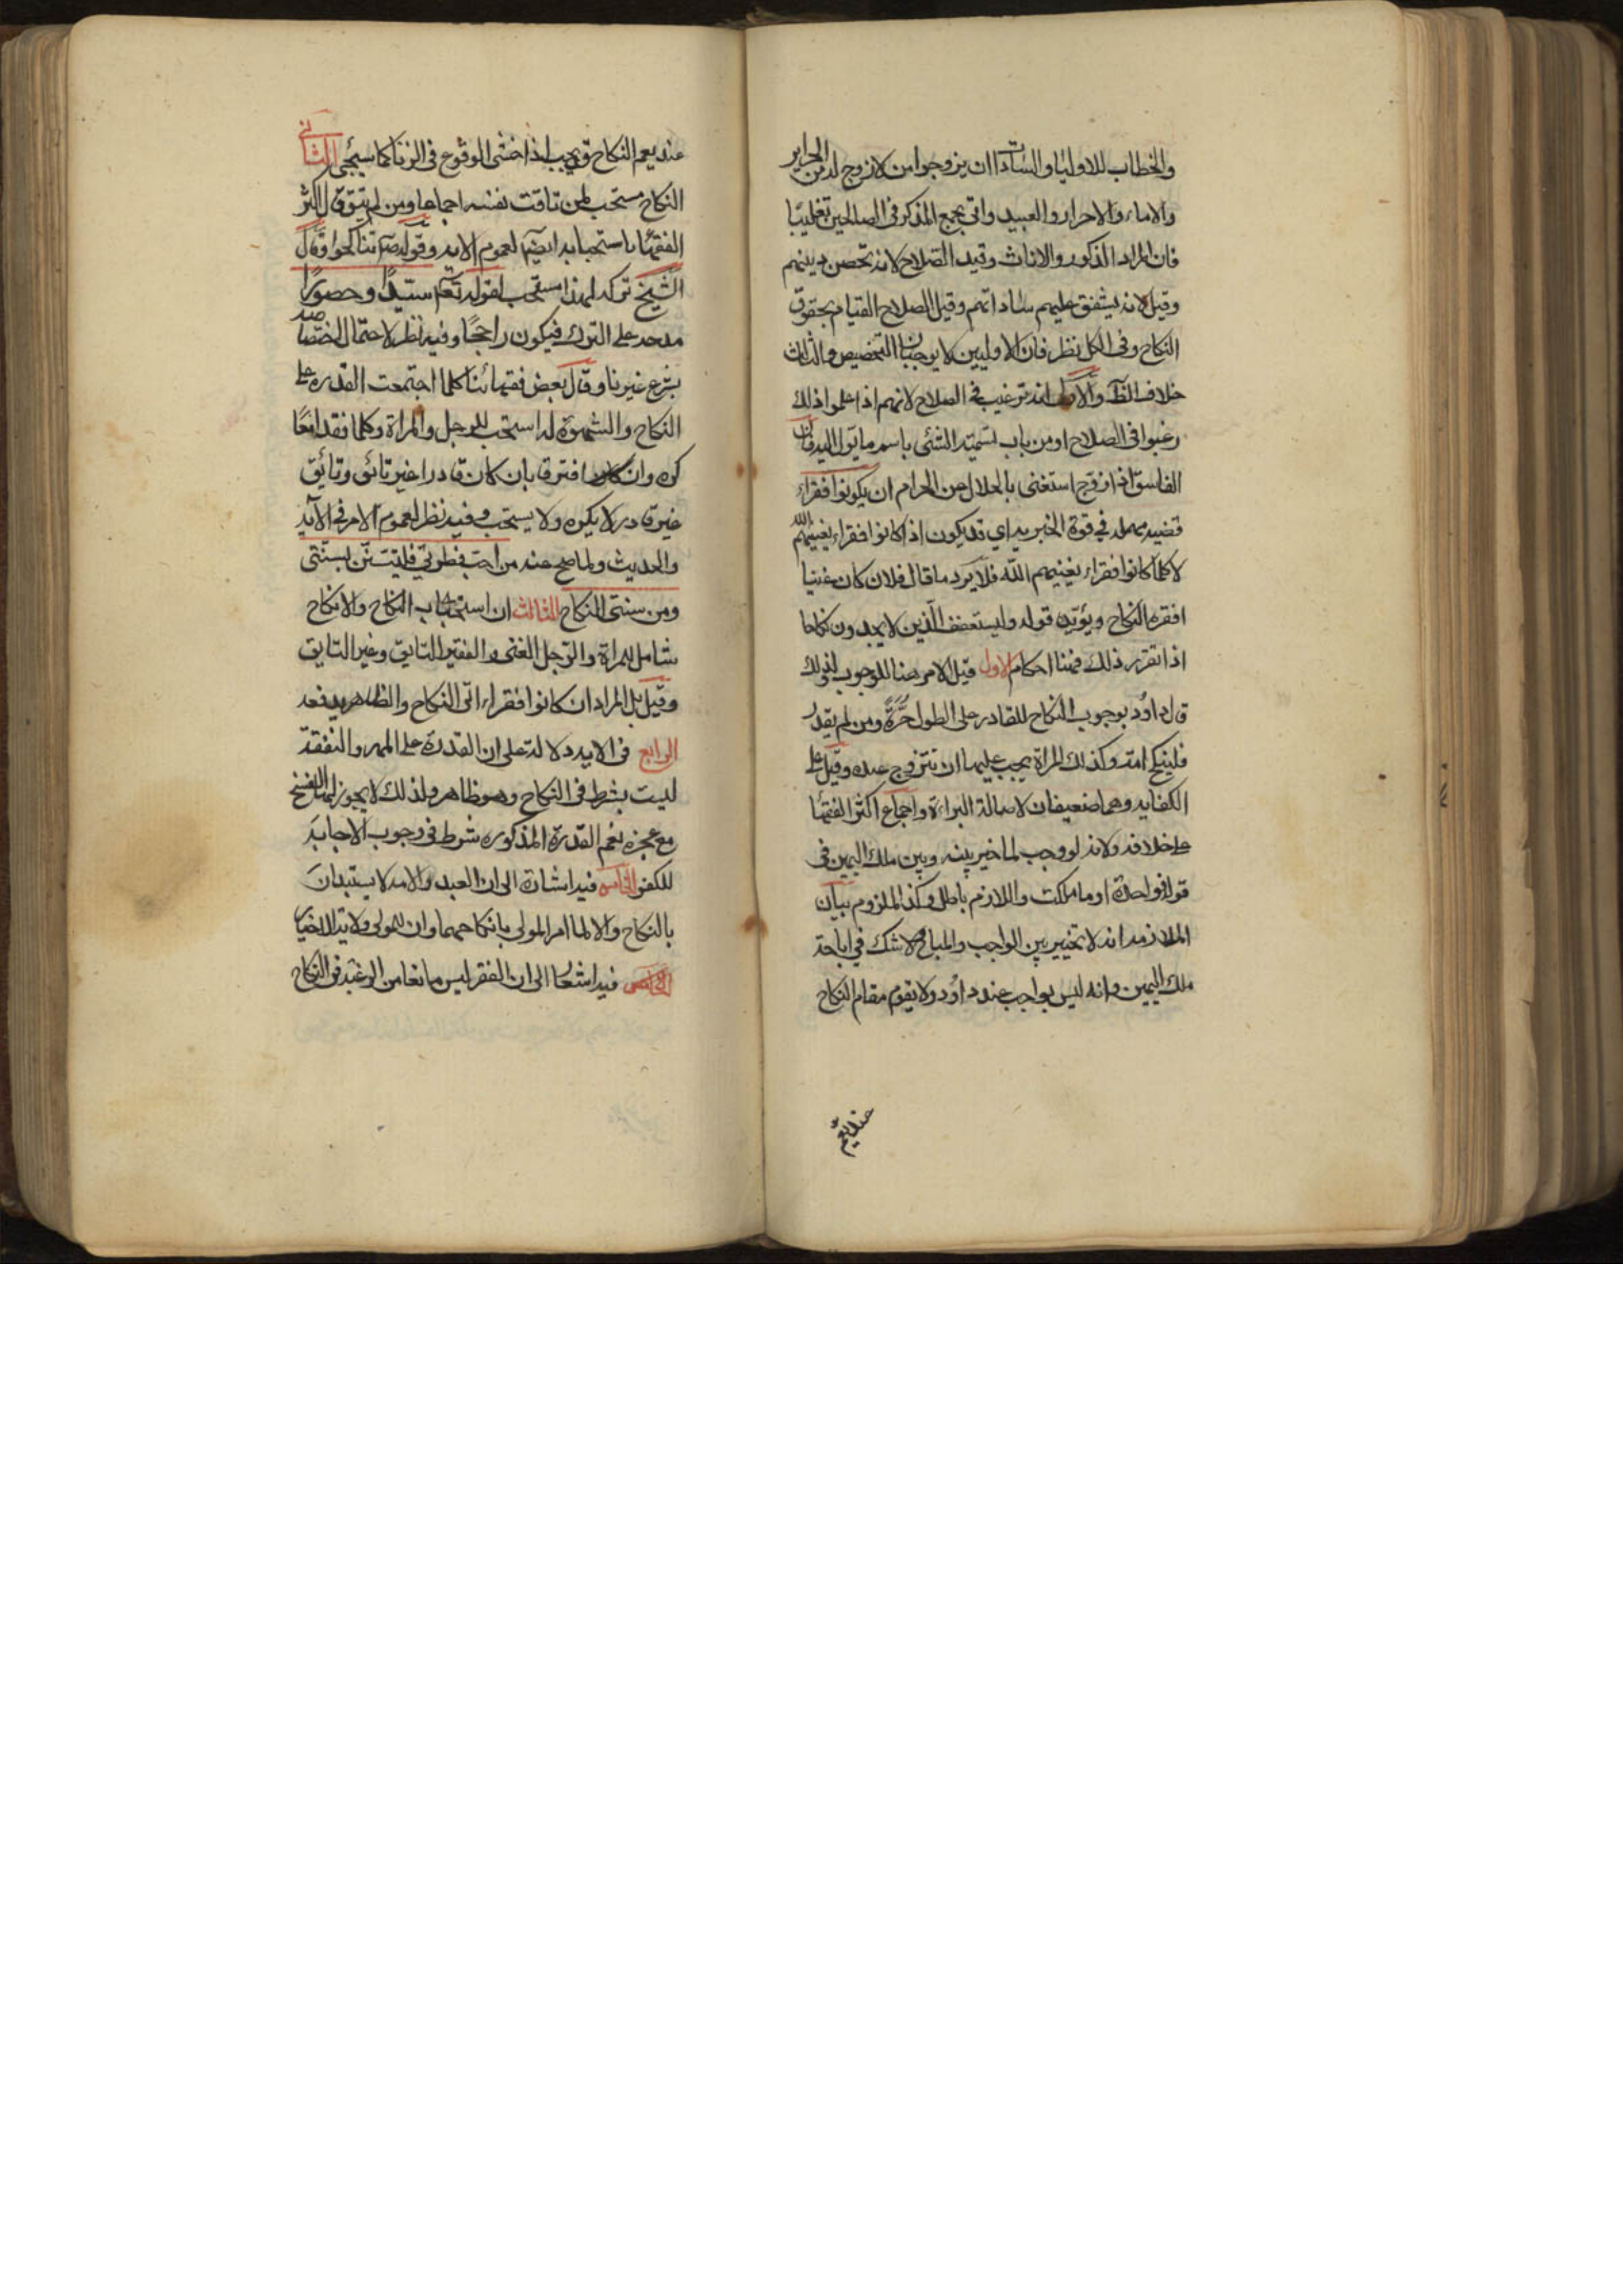 والخطاب للاوليا والسادات ان يزوجوا من لا زوج له من الحراير
والاماء والاحرار والعبيد واتى بجمع المذكر فى الصالحين تغليبا
فان المراد الذكور والاناث وقيد الصلاح لانه تحصن دينهم
وقيل لانه يشفق عليهم ساداتهم وقيل الصلاح القيام بحقوق
النكاح وفى الكل نظر فان الاوليين لا يوجبان التخصيص والثالث
خلاف الظ والاولى انه ترغيب فى الصلاح لانهم اذا علموا ذلك
رغبوا فى الصلاح او من باب تسمية الشئ باسم ما يؤل اليه فان
الفاسق اذا زوج استغنى بالحلال عن الحرام ان يكونوا فقراء
قضيه مهمله فى قوة الجزييه اي قد يكون اذا كانوا فقراء يغنيهم الله
لا كلما كانوا فقراء يغنيهم الله فلا يرد ما قال فلان كان غنيا
افقره النكاح ويؤيده قوله وليستعفف الذين لا يجدون نكاحا
اذا تقرر ذلك فهنا احكام الاول قيل الامر هنا للوجوب لذلك
قال داود بوجوب النكاح للقادر على الطول حرة ومن لم يقدر
فلينكح امة وكذلك المراة يجب عليها ان تتزوج عنده وقيل على
الكفايه وهما ضعيفان لاصالة البراءة واجماع اكثر الفقها
على خلافه ولانه لو وجب لما خير بينه وبين ملك اليمين فى
قوله فواحدة او ما ملكت واللازم باطل وكذا الملزوم بيان
الملازمه انه لا تخيير بين الواجب والمباح ولا شك في اباحة
ملك اليمين وانه ليس بواجب عند داود ولا يقوم مقام النكاح
عنده نعم
عنده نعم النكاح قد يجب اذا خشى الوقوع فى الزنا كما سيجى الثانى
النكاح مستحب لمن تاقت نفسه اجماعا ومن لم يتق قال اكثر
الفقها باستحبابه ايضا لعموم الايه وقوله ص تناكحوا وقال
الشيخ تركه لهذا مستحب لقوله تع سيدا وحصورا
مدحه على الترك فيكون راجحا وفيه نظر لاحتمال اختصاصه
بشرع غيرنا وقال بعض فقهائنا كلما اجتمعت القدره على
النكاح والشهوة له استحب للرجل والمراة وكلما فقدا معا
كره وان افترقا بان كان قادرا غير تائق وتائق
غير قادر لا يكره ولا يستحب وفيه نظر لعموم الامر فى الآيه
والحديث ولما صح عنه من احب فطرتي فليستن بسنتى
ومن سنتى النكاح الثالث ان استحباب النكاح والانكاح
شامل للمراة والرجل الغنى والفقير التايق وغير التايق
وقيل بل المراد ان كانوا فقراء الى النكاح والظاهر يدفعه
الرابع فى الايه دلالة على ان القدرة على المهر والنفقة
ليست بشرط فى النكاح وهو ظاهر ولذلك لا يجوز لها الفسخ
مع عجزه نعم القدرة المذكوره شرط فى وجوب الاجابة
للكفو الخامس فيه اشارة الى ان العبد والامه لا يستبدان
بالنكاح والا لما امر المولى بانكاحهما وان للمولى ولاية الاجبار
فيه اشعار الى ان الفقر ليس مانعا من الرغبة فى النكاح